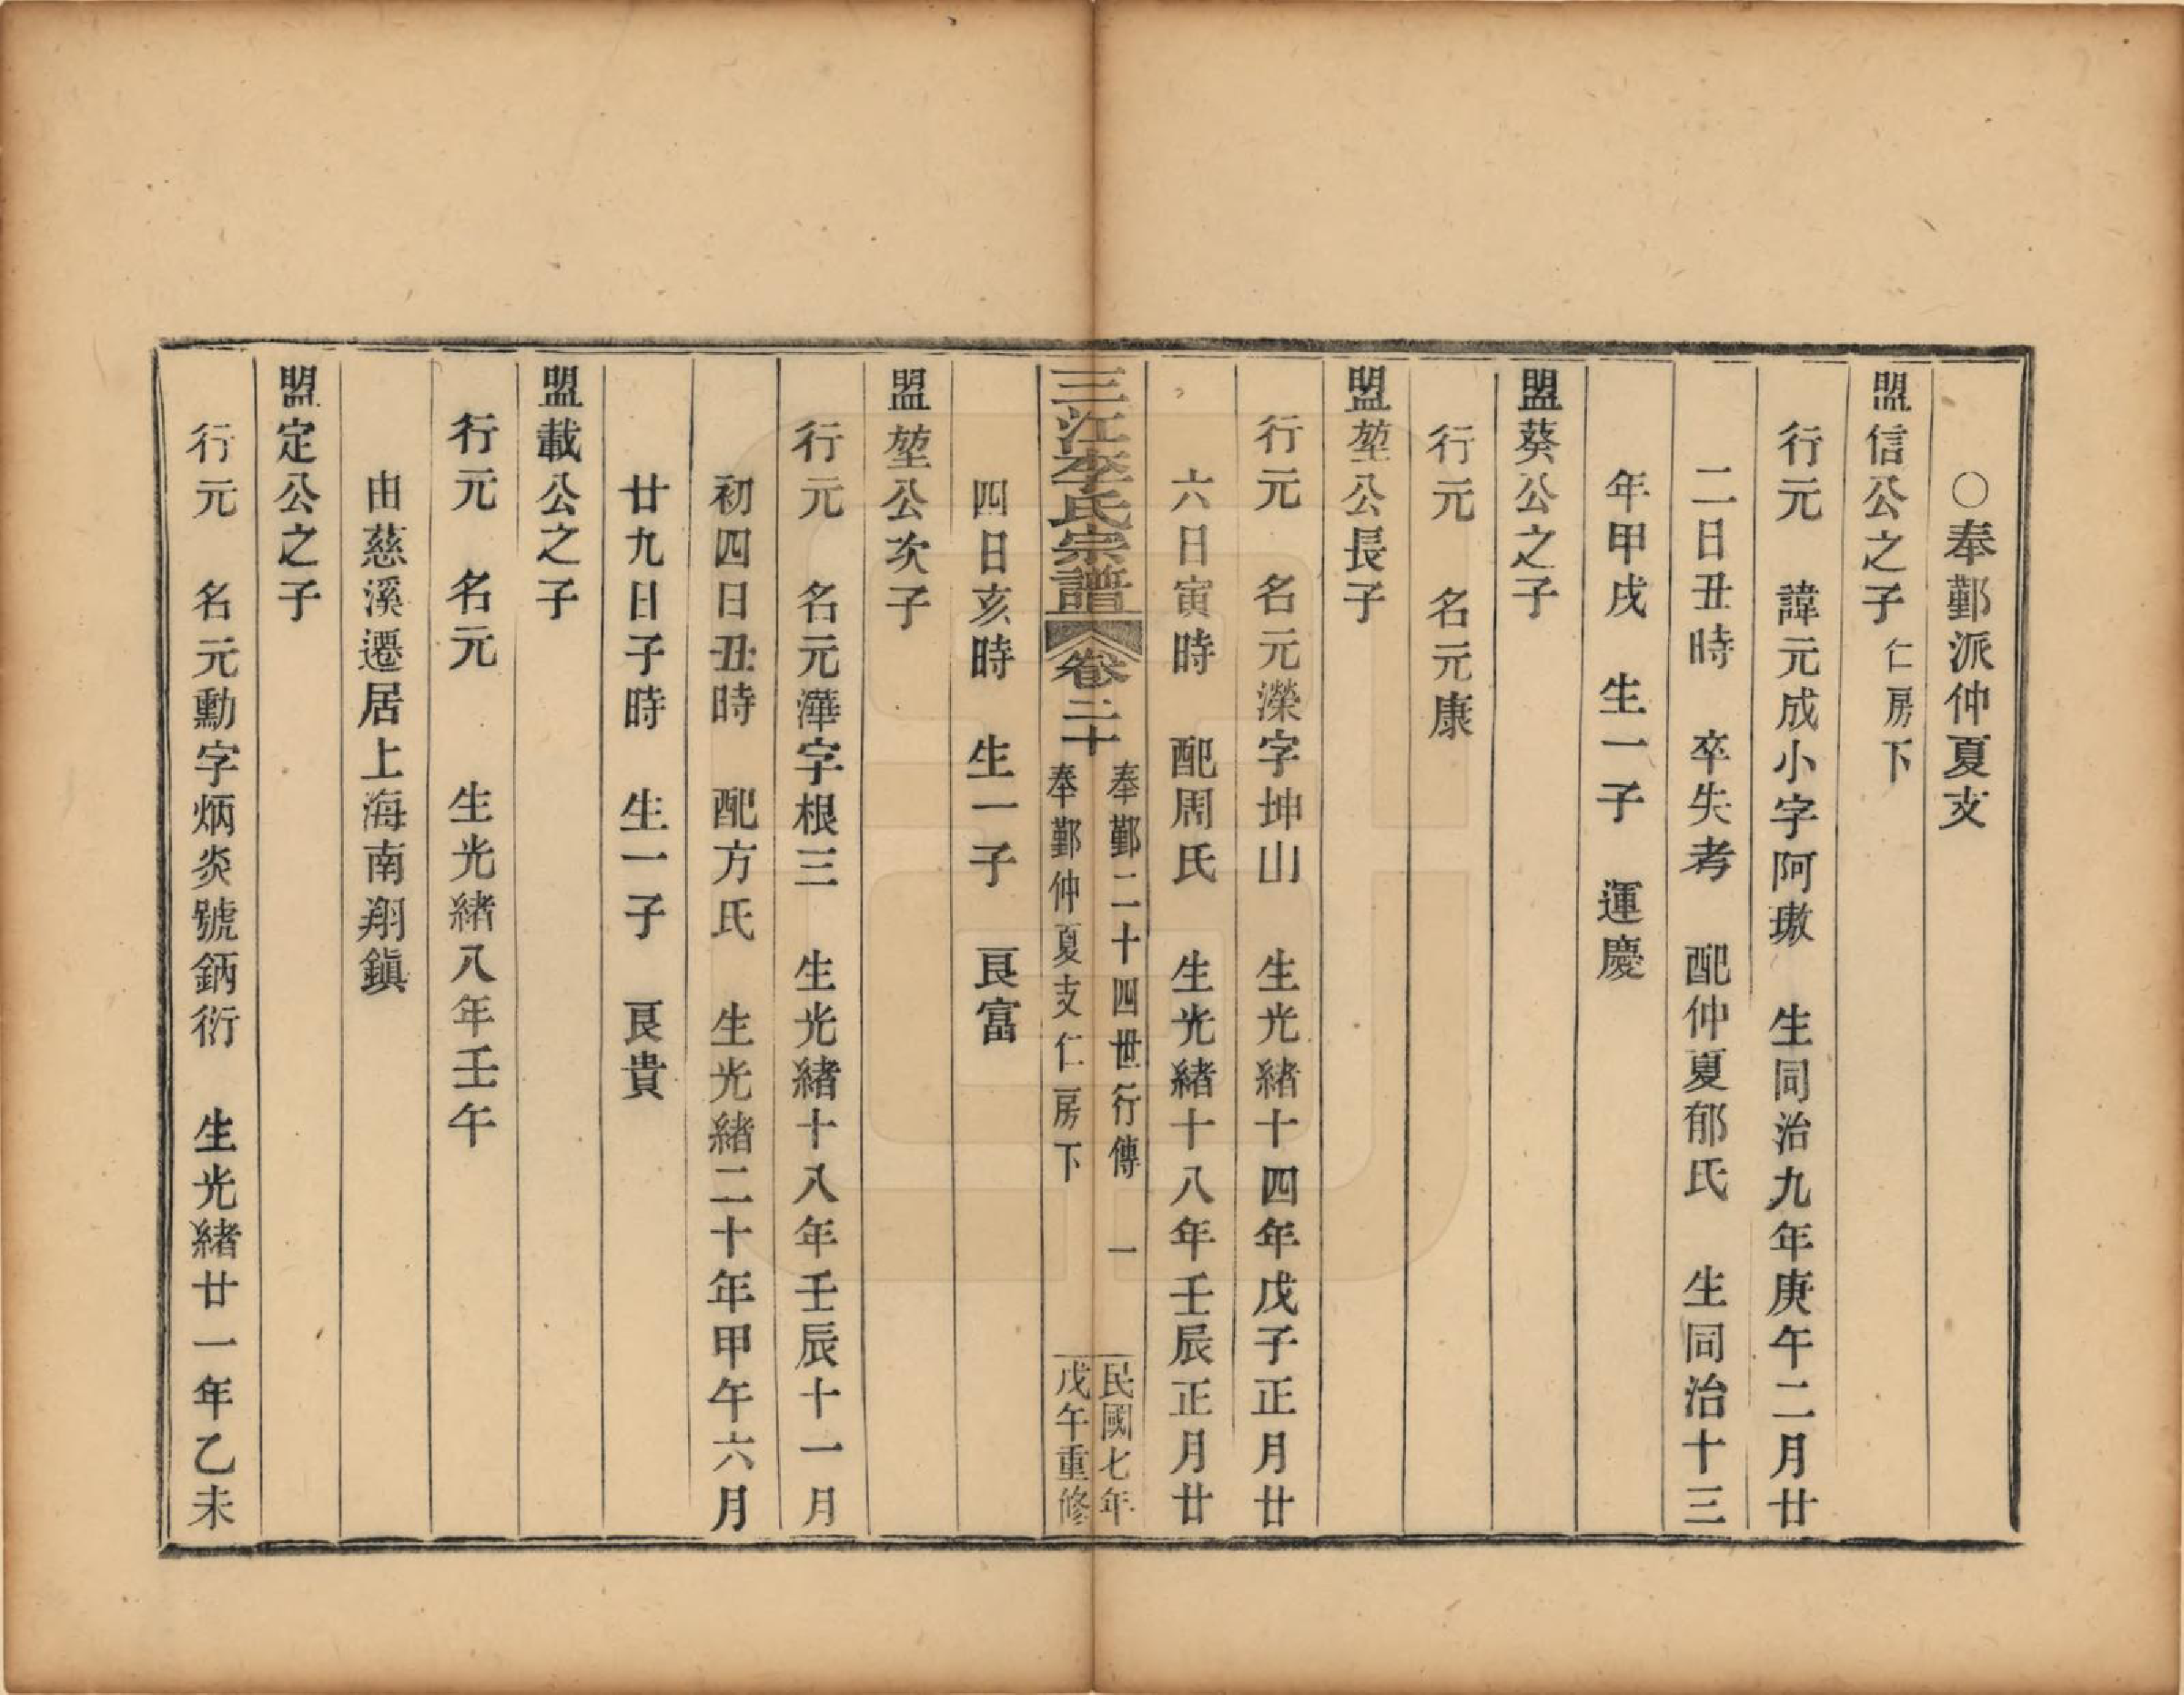 ○奉鄞派仲夏支
盟信公之子 仁房下
行元 諱元成小字阿璈 生同治九年庚午二月廿
二日丑時 卒失考 配仲夏郁氏 生同治十三
年甲戌 生一子 運慶
盟葵公之子
行元 名元康
盟堃公長子
行元 名元濚字坤山 生光緒十四年戊子正月廿
六日寅時 配周氏 生光緒十八年壬辰正月廿
三江李氏宗譜 卷二十
奉鄞二十四世行傳 一
奉鄞仲夏支仁房下
民國七年
戊午重修
四日亥時 生一子 艮富
盟堃公次子
行元 名元澕字根三 生光緒十八年壬辰十一月
初四日丑時 配方氏 生光緒二十年甲午六月
廿九日子時 生一子 艮貴
盟載公之子
行元 名元 生光緒八年壬午
由慈溪遷居上海南翔鎭
盟定公之子
行元 名元勳字炳炎號鈵衍 生光緒廿一年乙未